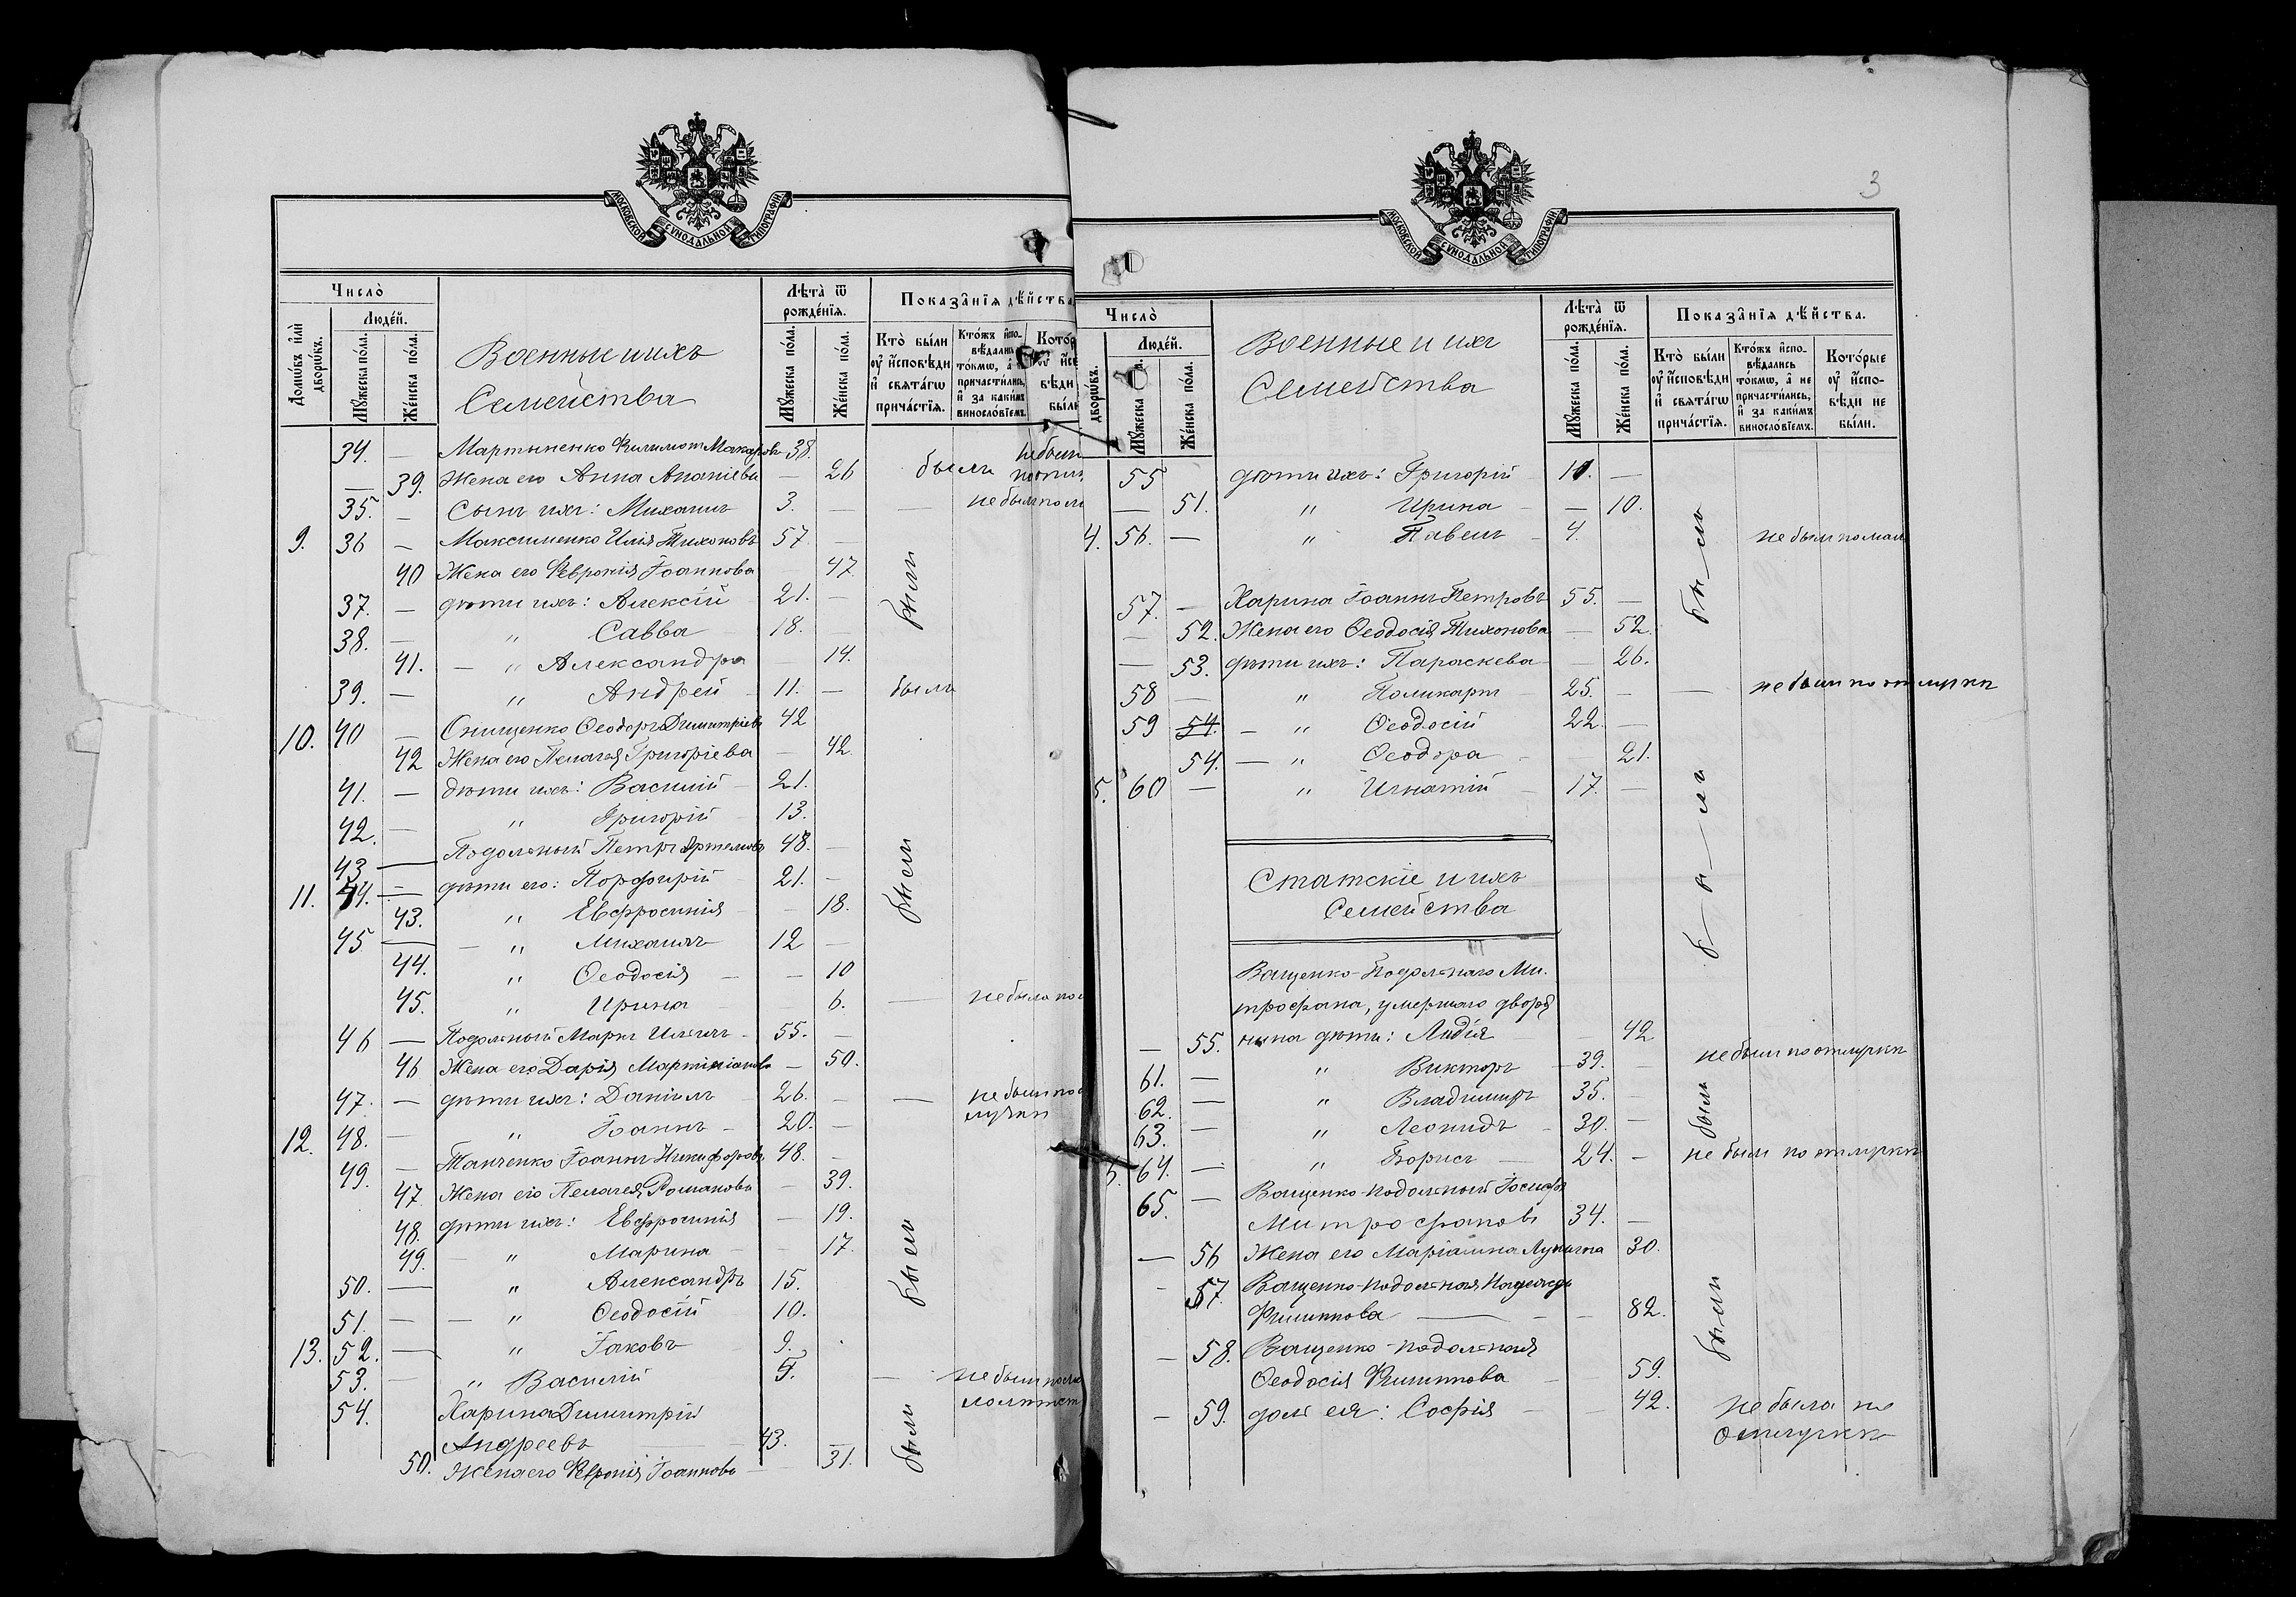 МОСКОВСКОЙ СѴНОДАЛЬНОЙ ТИПОГРАФІИ.
Число̀
Домѡ́въ и҆лѝ дворѡ́въ.
Людей.
Мꙋ́жеска по́ла.
Же́нска по́ла.
Военные и ихъ
Семейства
Лѣта̀ ѿ рожде́нїѧ.
Мꙋ́жеска по́ла.
Же́нска по́ла.
Показа̑нїѧ дѣ́йства
Кто̀ бы́ли ᲂу҆ и҆́сповѣди и҆ свѧта́гѡ прича́стїѧ.
Кто́жъ и҆спо-вѣ́дались то́кмѡ, а҆ причасти́лись, и҆ за каки́мъ винослові́емъ.
34. — Мартыненко Филимонъ Макаровъ 38.
— 39. Жена его Анна Ананіева — 26 были
35. — Сынъ ихъ: Михаилъ 3. —
9. 36 — Максименко Илія Тихоновъ 57 —
40 Жена его Феврония Іоаннова 47
37. — дѣти ихъ: Алексій 21. — были
38. — " Савва 18. —
41. — " Александра — 14.
39. — " Андрей 11. — былъ
10. 40 — Онищенко Ѳеодоръ Димитріевъ 42
42 Жена его Пелагея Григоріева — 42
41. — дѣти ихъ: Василій 21.
42. — " Григорій 13.
43 — Подольный Петръ Артемовъ 48. —
11. 44. — дѣти его: Порфирій 21. — были
43. " Евфросинія 18.
45 — " Михаилъ 12 —
44. " Ѳеодосія — 10
45. " Ирина 6. —
46 — Подольный Маркъ Ильичъ 55. —
46 Жена его Дарія Мартиніанова — 50.
47. — дѣти ихъ: Даніилъ 26. — —
12. 48. — " Іоаннъ 20. —
49. — Танченко Іоаннъ Никифоровъ 48. —
47 Жена его Пелагея Романова — 39.
48. дѣти ихъ: Евфросинія — 19.
49. — " Марина — 17.
50. — " Александръ 15. были
51. — " Ѳеодосій 10.
13. 52. — " Іаковъ 9.
53. — " Василій —
54. Харина Димитрій
Андреевъ 43. — были
50. Жена его Феврония Іоаннова — 31.
3
МОСКОВСКОЙ СѴНОДАЛЬНОЙ ТИПОГРАФІИ.
Число̀
дворѡ́въ.
Людей.
Мꙋ́жеска
Же́нска по́ла.
Военные и ихъ
Семейства
Лѣта̀ ѿ рожде́нїѧ.
Мꙋ́жеска по́ла.
Же́нска по́ла.
Показа̑нїѧ дѣ́йства.
Кто̀ бы́ли ᲂу҆ и҆́сповѣди и҆ свѧта́гѡ прича́стїѧ.
Кто́жъ и҆спо-вѣ́дались то́кмѡ, а҆ не причасти́лись, и҆ за каки́мъ винослові́емъ.
Кото́рые ᲂу҆ и҆спо-вѣди не бы́ли.
55 дѣти ихъ: Григорій 11. —
— 51. " Ирина — 10.
4. 56. — " Павелъ 4. не былъ по мал
57. — Харина Іоаннъ Петровъ 55. — были
— 52. Жена его Ѳеодосія Тихонова — 52.
— 53. дѣти ихъ: Параскева — 26.
58 — " Поликарпъ 25. — — не былъ по отлучкѣ
59 54. — " Ѳеодосій 22. —
54. — " Ѳеодора 21.
5. 60 — " Игнатій 17. — были
Статскіе и ихъ
Семейства
Ващенко-Подольнаго Ми-
трофана, умершаго дворя
— 55. нина дѣти: Лидія — 42
61. — " Викторъ 39. — не былъ по отлучкѣ
62. — " Владимиръ 35. — были
63. — " Леонидъ 30. —
64. — " Борисъ 24. — не былъ по отлучкѣ
65. — Ващенко-Подольный Іосифъ
Митрофановъ 34. —
— 56 Жена его Маріамна Лукична 30.
— 57. Ващенко-Подольная Надежда
Филиппова — 82. были
— 58. Ващенко-Подольная
Ѳеодосія Филиппова 59.
— 59. дочь ея: Софія — 42. не была по
отлучкѣ